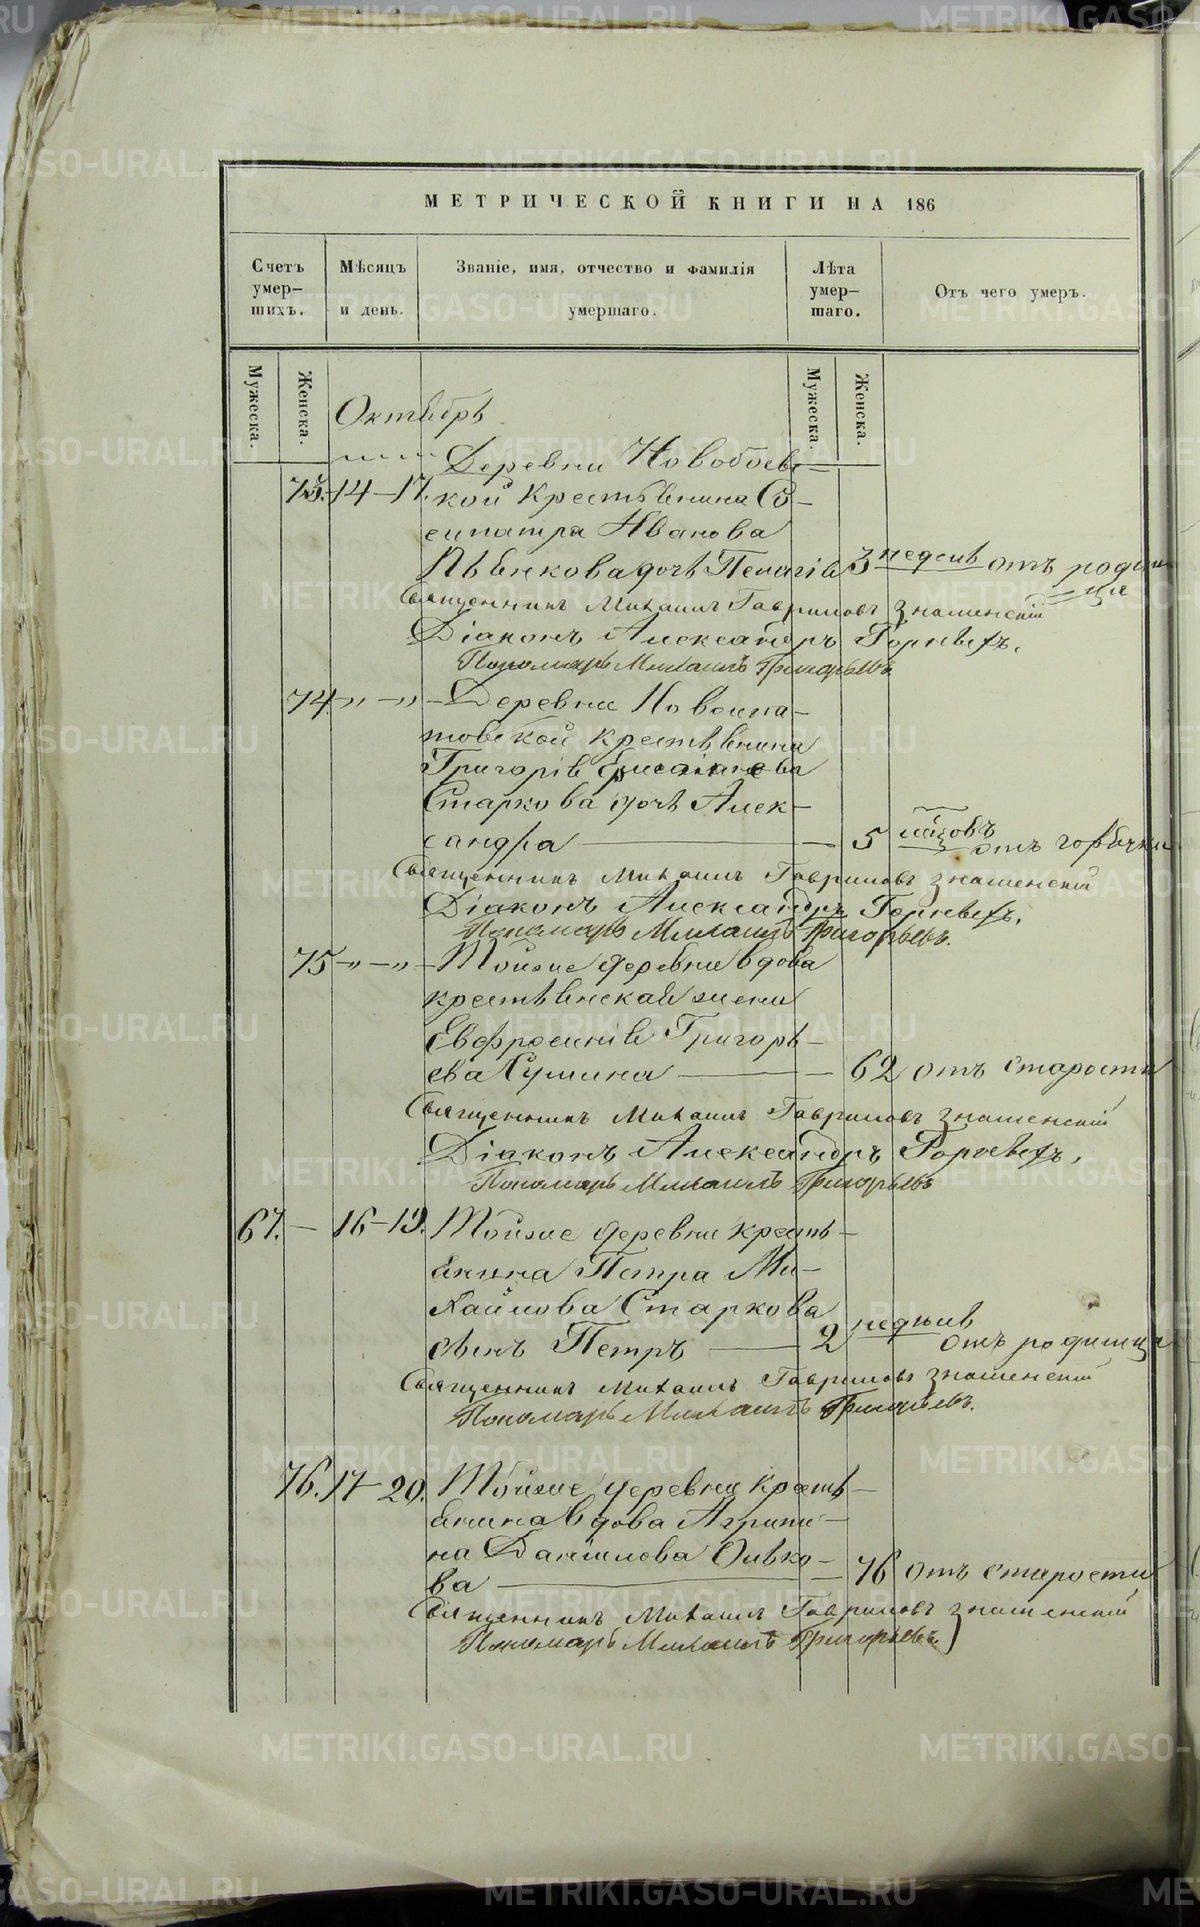 МЕТРИЧЕСКОЙ КНИГИ НА 186
Счетъ умер—шихъ.
Мѣсяцъ и день.
Званіе, имя, отчество и фамилія умершаго.
Лѣта умер—шаго.
Отъ чего умеръ.
Мужеска.
Женска.
Мужеска.
Женска.
Октябрь
Деревни Новобоевс=
73. 14—17. кой Крестьянина Со—
сипатра Иванова
Пьянкова дочь Пелагія 3 недель отъ родим=
=ца
Священникъ Михаилъ Гавриловъ Знаменскій
Діаконъ Александръ
Пономарь Михаилъ Григорьевъ
74 —„ —„ — Деревни Новоипа—
товской крестьянина
Григорія
Старкова дочь Алек—
сандра — 5 мѣсяцовъ отъ горячки
Священникъ Михаилъ Гавриловъ Знаменскій
Діаконъ Александръ
Пономарь Михаилъ Григорьевъ.
75 —„ —„ — Тойже деревни вдова
крестьянская жена
Евфросинія Григорь—
ева Сушина — 62 отъ старости
Священникъ Михаилъ Гавриловъ Знаменскій
Діаконъ Александръ
Пономарь Михаилъ Григорьевъ
67. — 16—19. Тойже деревни кресть—
янина Петра Ми—
хайлова Старкова
сынъ Петръ — 2 недѣль отъ родимца
Священникъ Михаилъ Гавриловъ Знаменскій
Пономарь Михаилъ Григорьевъ.
76. 17—20. Тойже деревни кресть—
янина вдова Агрипи—
на Даниилова
ва — 76 отъ старости
Священникъ Михаилъ Гавриловъ Знаменскій
Пономарь Михаилъ Григорьевъ
METRIKI.GASO-URAL.RU